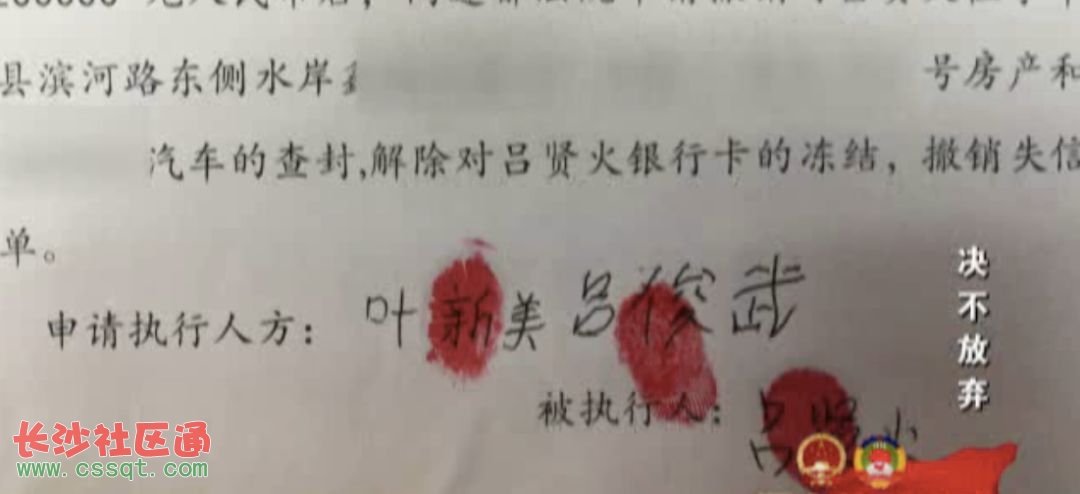 县滨河路东侧水岸 号房产和
汽车的查封,解除对吕贤火银行卡的冻结，撤销失信
单。
申请执行人方： 叶新美 吕俊武
被执行人：吕
决不放弃
长沙社区通
www.cssqt.com